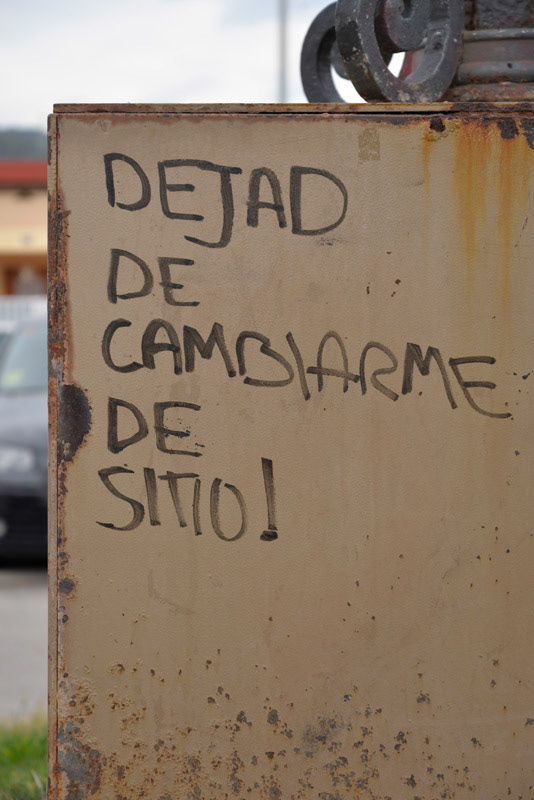 DEJAD
DE
CAMBIARME
DE
SITIO!